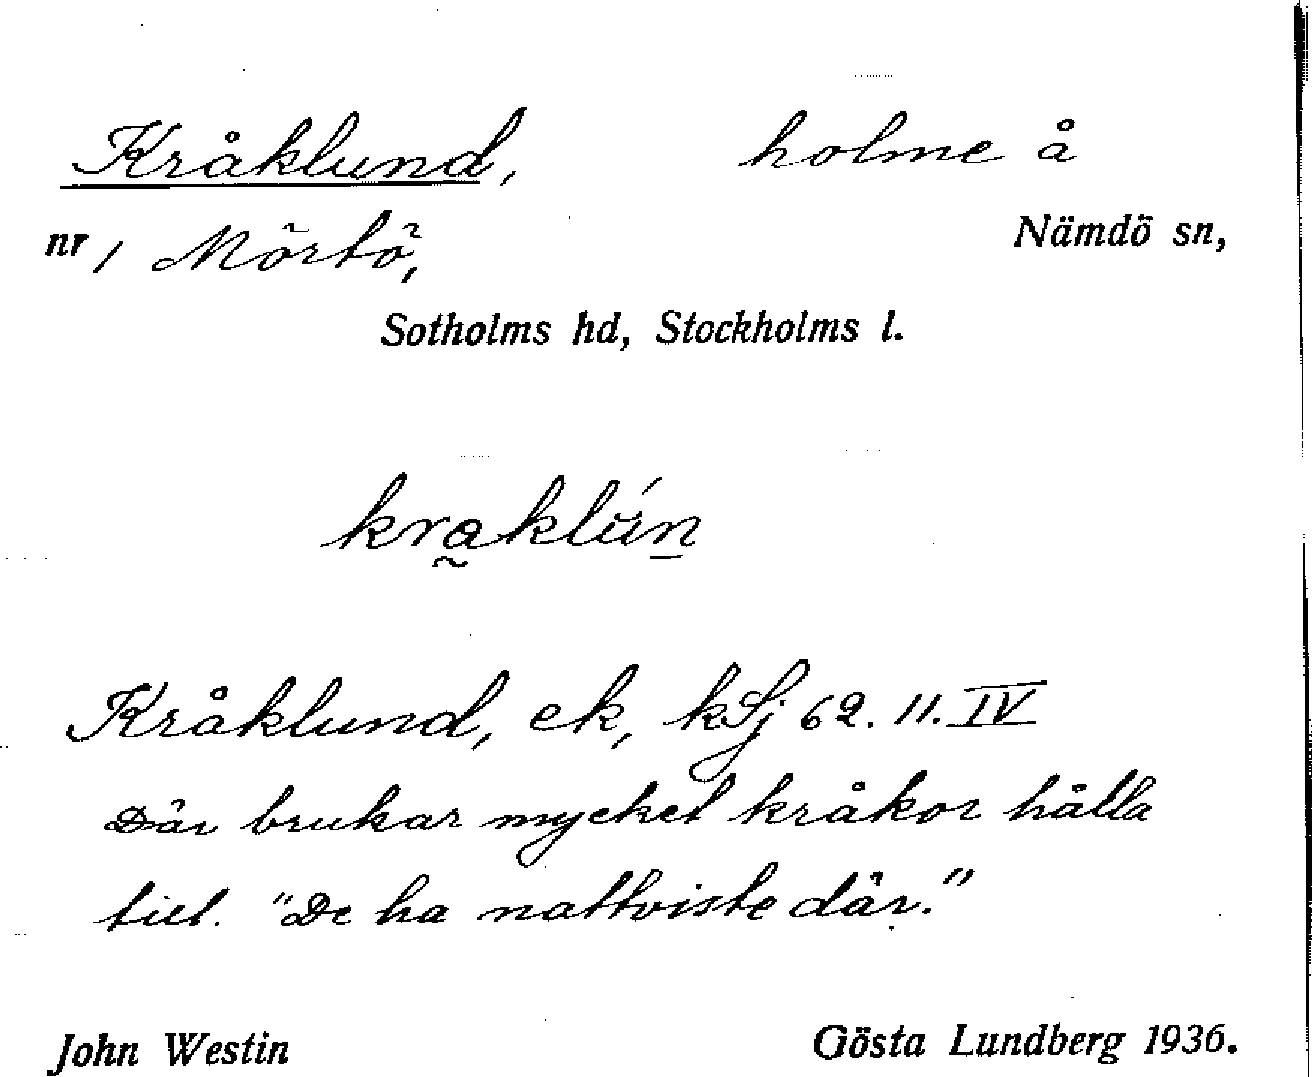 Kråklund, holme å
nr 1 Mörtö, Nämdö sn,
Sotholms hd, Stockholms l.
kra̰klún̲
Kråklund, ek, kSj 62. 11. IV
Där brukar mycket kråkor hålla
till. "De ha nattviste där."
John Westin Gösta Lundberg 1936.